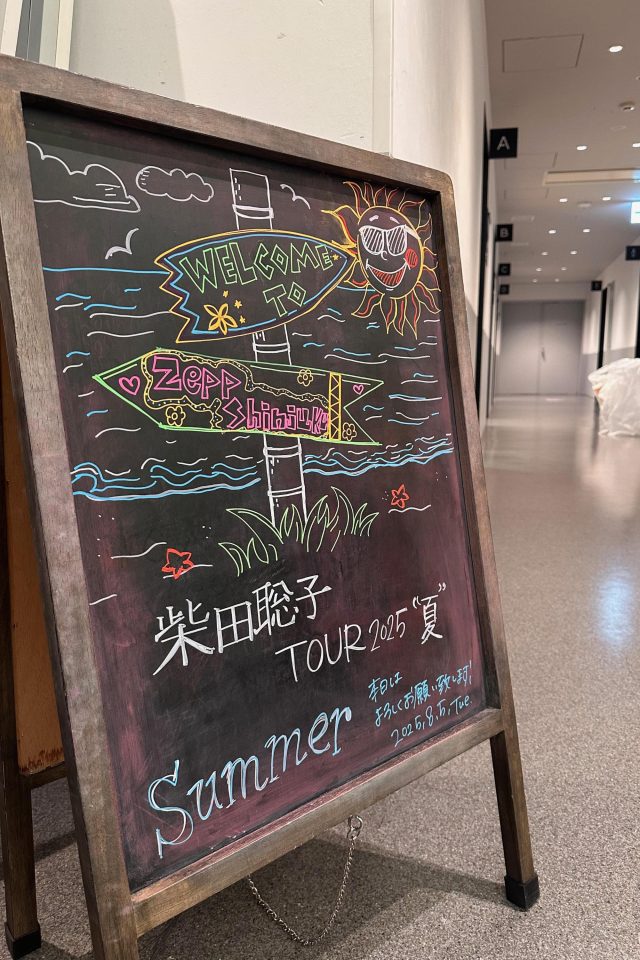 WELCOME
TO
Zepp
Shinjuku
柴田聡子
TOUR 2025 "夏"
Summer
本日は
よろしくお願い致します!
2025.8.5.Tue.
A
B
C